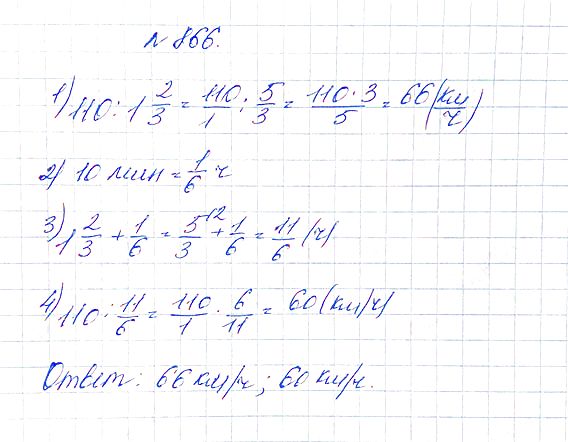 № 866.
1) 110 : 1 2/3 = 110/1 : 5/3 = 110 · 3/5 = 66 (км/ч)
2) 10 мин = 1/6 ч
3) 1 2/3 + 1/6 = 5/3 \2 + 1/6 = 11/6 (ч)
4) 110 : 11/6 = 110/1 · 6/11 = 60 (км/ч)
Ответ: 66 км/ч; 60 км/ч.